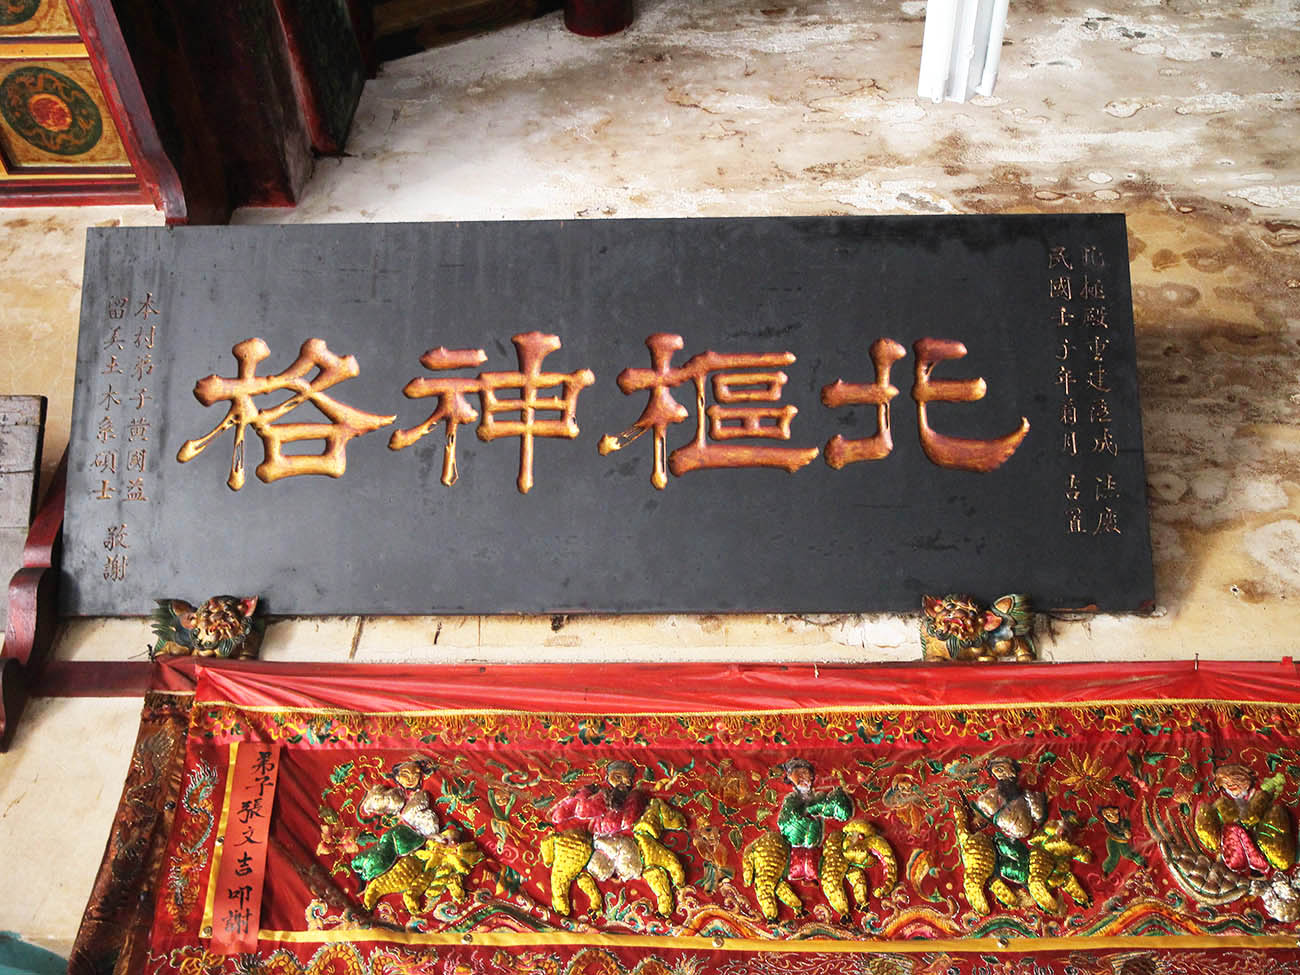 北極殿重建落成 法慶
民國壬子年菊月 吉置
北樞神格
本村弟子黃國益
留美土木系碩士 敬謝
弟子張文吉叩謝